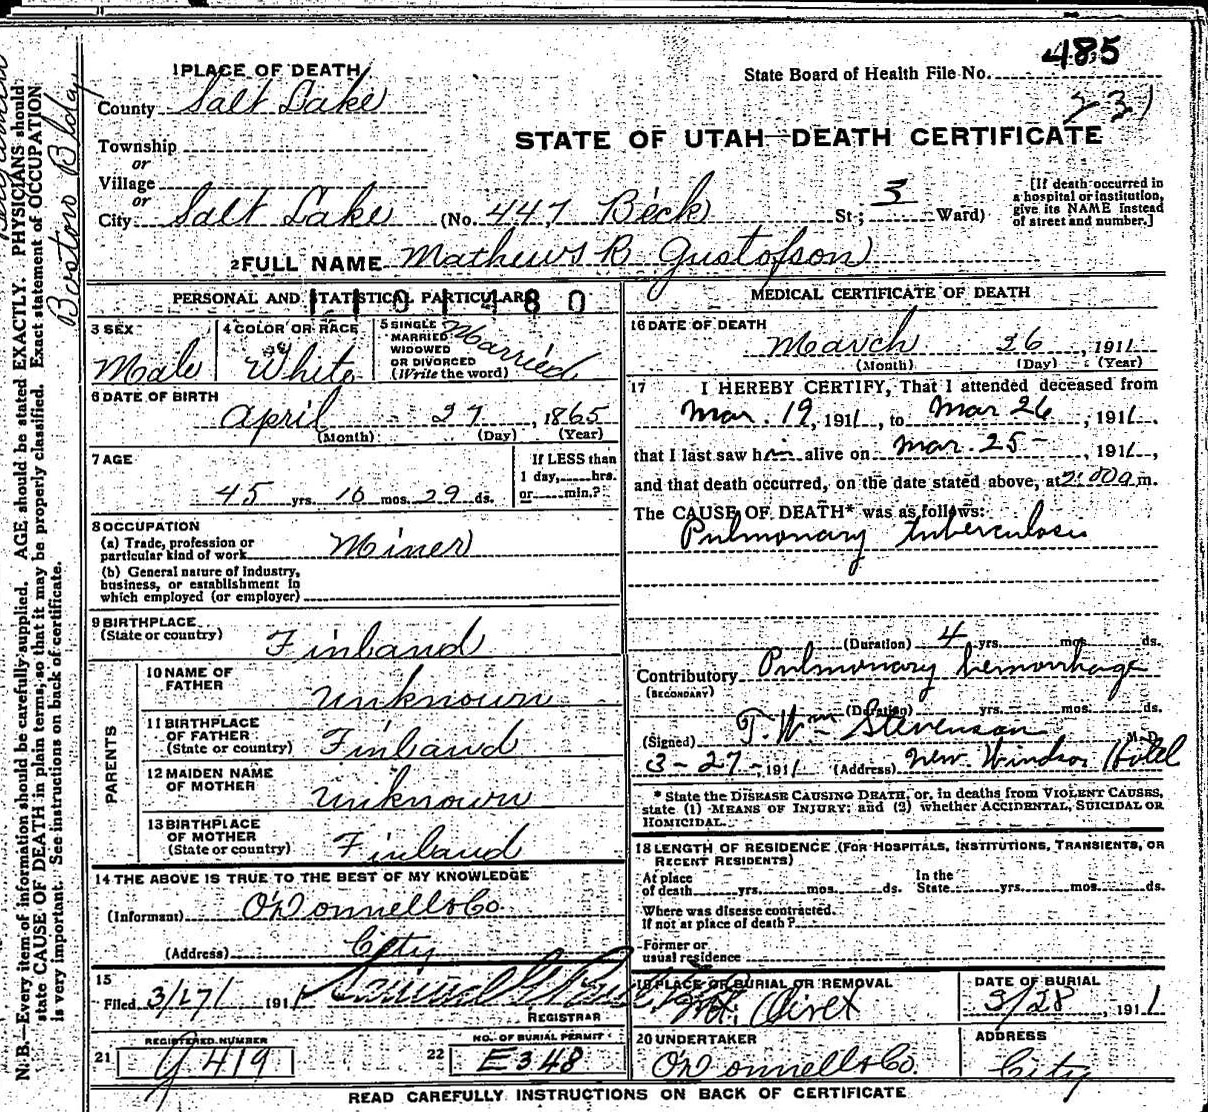 485
State Board of Health File No.
231
1 PLACE OF DEATH
County Salt Lake
STATE OF UTAH—DEATH CERTIFICATE
Township
or
Village
or
City Salt Lake (No. 447 Beck St; 5 Ward)
[If death occurred in
a hospital or institution,
give its NAME instead
of street and number.]
2 FULL NAME Mathews B Gustofson
PERSONAL AND STATISTICAL PARTICULARS
1101480
3 SEX Male
4 COLOR OR RACE White
5 SINGLE
MARRIED
WIDOWED
OR DIVORCED
(Write the word) Married
6 DATE OF BIRTH
April 27, 1865
(Month) (Day) (Year)
7 AGE
45 yrs. 10 mos. 29 ds.
If LESS than
1 day, hrs.
or min.?
8 OCCUPATION
(a) Trade, profession or
particular kind of work Miner
(b) General nature of industry,
business, or establishment in
which employed (or employer)
9 BIRTHPLACE
(State or country) Finland
PARENTS
10 NAME OF
FATHER Unknown
11 BIRTHPLACE
OF FATHER
(State or country) Finland
12 MAIDEN NAME
OF MOTHER Unknown
13 BIRTHPLACE
OF MOTHER
(State or country) Finland
14 THE ABOVE IS TRUE TO THE BEST OF MY KNOWLEDGE
(Informant) O'Donnell & Co
(Address) City
15
Filed 3/27/ 191
REGISTRAR
REGISTERED NUMBER
21 419
NO. OF BURIAL PERMIT
22 E348
MEDICAL CERTIFICATE OF DEATH
16 DATE OF DEATH
March 26, 1911
(Month) (Day) (Year)
17 I HEREBY CERTIFY, That I attended deceased from
Mar. 19, 1911, to Mar 26, 1911.
that I last saw him alive on Mar. 25, 1911,
and that death occurred, on the date stated above, at 2:00 a m.
The CAUSE OF DEATH* was as follows:
Pulmonary tuberculosis
(Duration) 4 yrs. mos. ds.
Contributory Pulmonary hemorrhage
(SECONDARY)
(Duration) yrs. mos. ds.
(Signed) T. Wm Stevenson M. D.
3-27-, 1911 (Address) New Windsor Hotel
* State the DISEASE CAUSING DEATH, or, in deaths from VIOLENT CAUSES,
state (1) MEANS OF INJURY; and (2) whether ACCIDENTAL, SUICIDAL OR
HOMICIDAL.
18 LENGTH OF RESIDENCE (FOR HOSPITALS, INSTITUTIONS, TRANSIENTS, OR
RECENT RESIDENTS)
At place
of death yrs. mos. ds.
In the
State yrs. mos. ds.
Where was disease contracted.
If not at place of death?
Former or
usual residence
19 PLACE OF BURIAL OR REMOVAL
Mt. Olivet
DATE OF BURIAL
3/28, 1911
20 UNDERTAKER
O'Donnell & Co.
ADDRESS
City
READ CAREFULLY INSTRUCTIONS ON BACK OF CERTIFICATE
N. B.—Every item of information should be carefully supplied. AGE should be stated EXACTLY. PHYSICIANS should
state CAUSE OF DEATH in plain terms, so that it may be properly classified. Exact statement of OCCUPATION
is very important. See instructions on back of certificate.
Boston Bldg